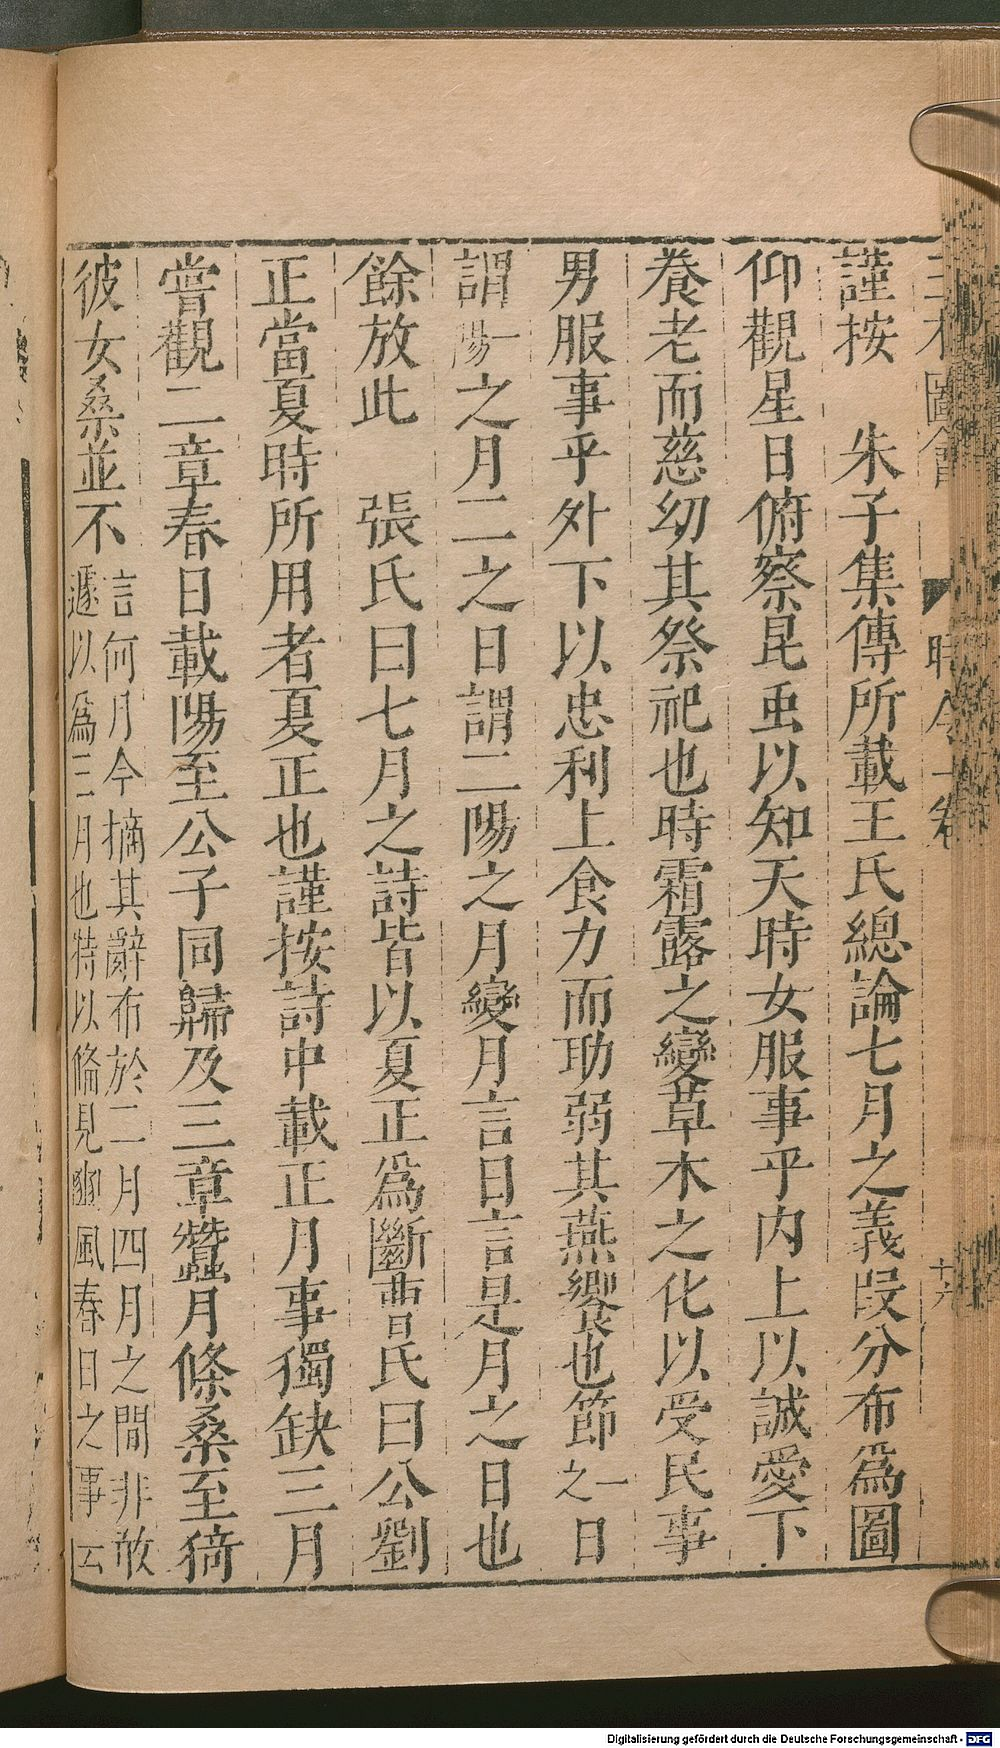 謹按　朱子集傳所載王氏總論七月之義叚分布爲圖
仰觀星日俯察昆虫以知天時女服事乎内上以誠愛下
養老而慈幼其祭祀也時霜露之變草木之化以受民事
男服事乎外下以忠利上食力而助弱其燕饗也節一之日
謂一陽之月二之日謂二陽之月變月言日言是月之日也
餘放此　張氏曰七月之詩皆以夏正爲斷曹氏曰公劉
正當夏時所用者夏正也謹按詩中載正月事獨缺三月
嘗觀二章春日載陽至公子同歸及三章蠶月條桑至猗
彼女桑並不
言何月今摘其辭布於二月四月之間非敢
遽以爲三月也特以備見豳風春日之事云
時令一卷
十六
Digitalisierung gefördert durch die Deutsche Forschungsgemeinschaft - DFG